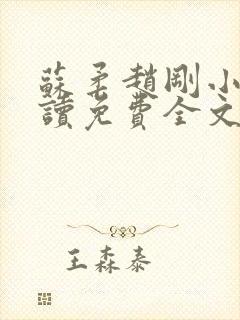 蘇柔趙剛小
讀免費全文
王森泰